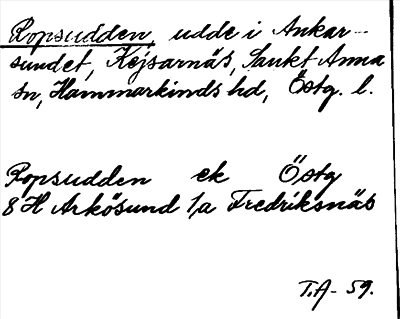 Ropsudden, udde i Ankar-
sundet, Kejsarnäs, Sankt Anna
sn, Hammarkinds hd, Östg. l.
Ropsudden ek Östg
8 H Arkösund 1/a Fredriksnäs
T.A- 59.